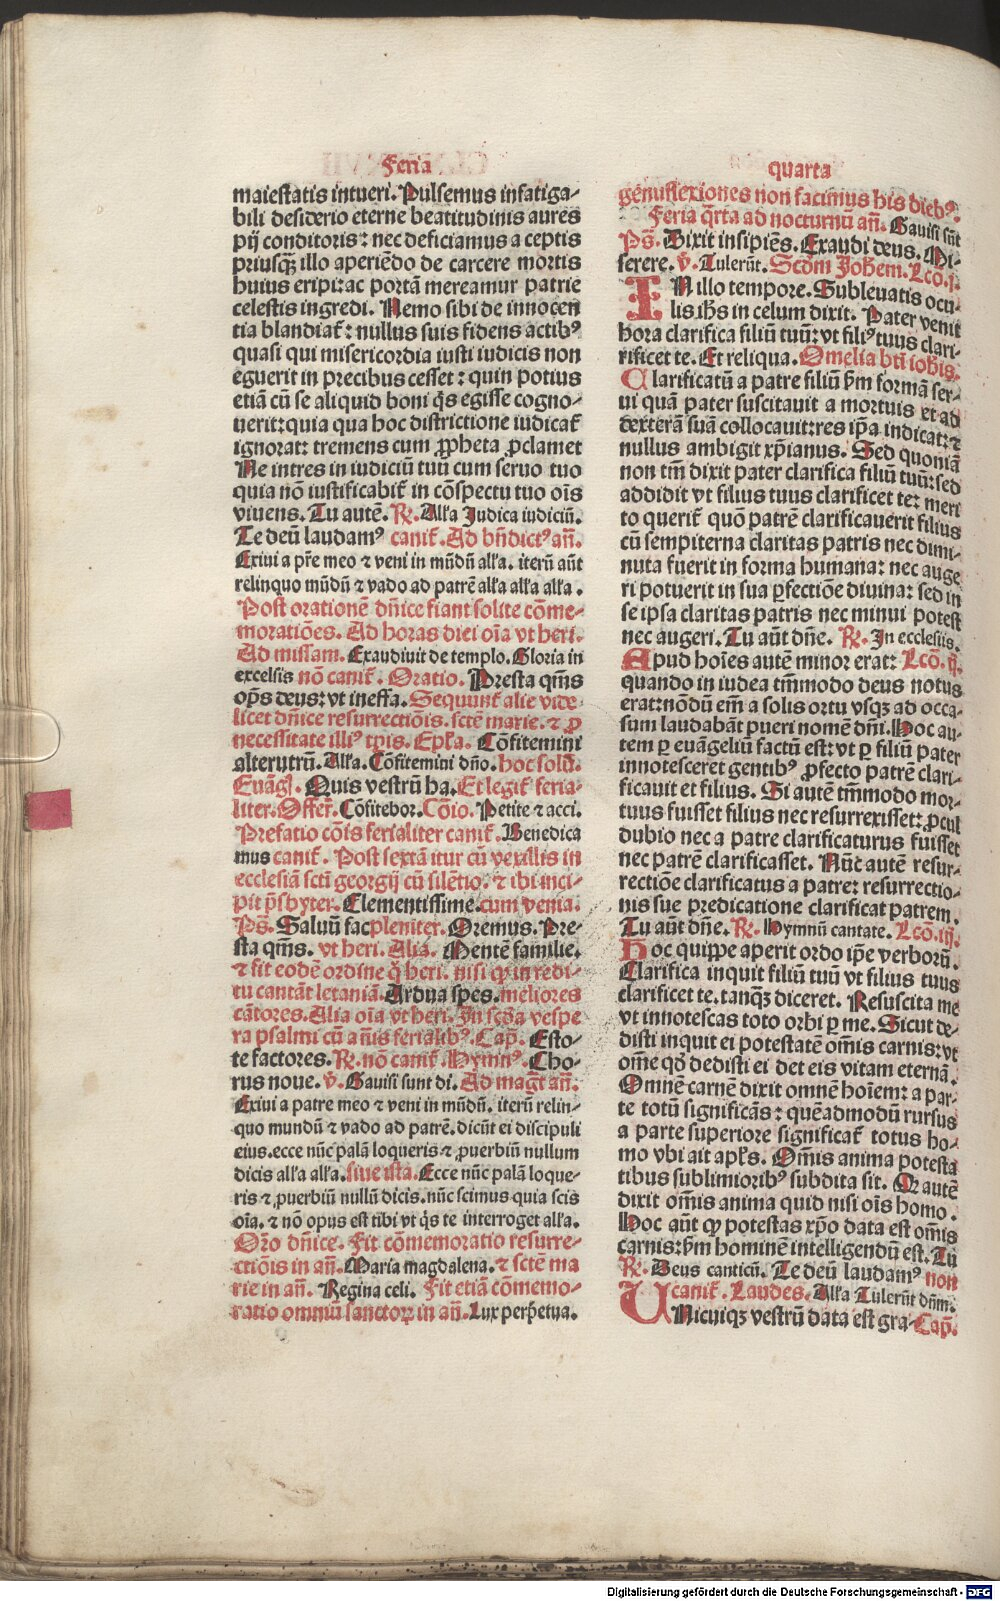 Feria
maiestatis intueri. Pulsemus infatiga-
bili desiderio eterne beatitudinis aures
pij conditoris: nec deficiamus a ceptis
priusqꝫ illo aperiēdo de carcere mortis
huius eripi: ac portā mereamur patrie
celestis ingredi. Nemo sibi de innocen
tia blandiat̄: nullus suis fidens actibꝰ
quasi qui misericordia iusti iudicis non
eguerit in precibus cesset: quin potius
etiā cū se aliquid boni q̄s egisse cogno-
uerit: quia qua hoc districtione iudicat̄
ignorat: tremens cum ꝓp̄heta ꝓclamet
Ne intres in iudiciū tuū cum seruo tuo
quia nō iustificabit̄ in cōspectu tuo oīs
viuens. Tu autē. R̄. Alľa Judica iudiciū.
Te deū laudamꝰ canit̄. Ad bn̄dictꝰ an̄.
Exiui a pr̄e meo ⁊ veni in mūdū alľa. iterū aūt
relinquo mūdū ⁊ vado ad patrē alľa alľa alľa.
Post orationē dn̄ice fiant solite cōme-
moratiōes. Ad horas diei oīa vt heri.
Ad missam. Exaudiuit de templo. Gloria in
excelsis nō canit̄. Oratio. Presta q̄m̄s
op̄s deus: vt in effa. Sequunt̄ alie vide
licet dn̄ice resurrectiōis. sctē marie. ⁊ ꝓ
necessitate illiꝰ tp̄is. Epľa. Cōfitemini
alterutrū. Alľa. Cōfitemini dn̄o. hoc solū.
Euāgľ. Quis vestrū ha. Et legit̄ feria-
liter. Offer̄. Cōfitebor. Cōio. Petite ⁊ acci.
Prefatio cōis ferialiter canit̄. Benedica
mus canit̄. Post sextā itur cū vexillis in
ecclesiā scti georgij cū silētio. ⁊ ibi inci-
pit p̄sbyter. Clementissime. cum venia.
Ps̄. Saluū fac pleniter. Oremus. Pre-
sta q̄m̄s. vt heri. Alia. Mentē familie.
⁊ fit eodē ordine q̄ heri. nisi ꝙ in redi-
tu cantāt letaniā. Ardua spes. meliores
cātores. Alia oīa vt heri. In scd̄a vespe
ra psalmi cū an̄is ferialibꝰ. Cap̄. Esto-
te factores. R̄. nō canit̄. Hymnꝰ. Cho-
rus noue. v̄. Gauisi sunt di. Ad maḡt an̄.
Exiui a patre meo ⁊ veni in mūdū. iterū relin-
quo mundū ⁊ vado ad patrē. dicūt ei discipuli
eius. ecce nūc palā loqueris ⁊ ꝓuerbiū nullum
dicis alľa alľa. siue ista. Ecce nūc palā loque-
ris ⁊ ꝓuerbiū nullū dicis. nūc scimus quia scis
oīa. ⁊ nō opus est tibi vt q̄s te interroget alľa.
Orō dn̄ice. Fit cōmemoratio resurre-
ctiōis in an̄. Maria magdalena. ⁊ sctē ma
rie in an̄. Regina celi. Fit etiā cōmemo-
ratio omniū sanctoꝝ in an̄. Lux perpetua.
quarta
genuflexiones non facimus his diebꝰ.
Feria q̄rta ad nocturnū an̄. Gauisi sn̄t
Ps̄. Dixit insipiēs. Exaudi deus. Mi-
serere. v̄. Tulerūt. Scd̄m Joh̄em. Lcō. j.
IN illo tempore. Subleuatis ocu-
lis ih̄s in celum dixit. Pater venit
hora clarifica filiū tuū: vt filiꝰ tuus clari-
rificet te. Et reliqua. Omelia bt̄i ioh̄is.
Clarificatū a patre filiū ẜm formā ser-
ui quā pater suscitauit a mortuis et ad
dexterā suā collocauit: res ip̄a indicat: ⁊
nullus ambigit xp̄ianus. Sed quoniā
non tm̄ dixit pater clarifica filiū tuū: sed
addidit vt filius tuus clarificet te: meri
to querit̄ quō patrē clarificauerit filius
cū sempiterna claritas patris nec dimi-
nuta fuerit in forma humana: nec auge
ri potuerit in sua ꝑfectiōe diuina: sed in
se ipsa claritas patris nec minui potest
nec augeri. Tu aūt dn̄e. R̄. In ecclesiis.
Apud hoīes autē minor erat: Lcō. ij.
quando in iudea tm̄modo deus notus
erat: nōdū em̄ a solis ortu vsqꝫ ad occa-
sum laudabāt pueri nomē dn̄i. Hoc au-
tem ꝑ euāgeliū factū est: vt ꝑ filiū pater
innotesceret gentibꝰ ꝓfecto patrē clari-
ficauit et filius. Si autē tm̄modo mor-
tuus fuisset filius nec resurrexisset: ꝓcul
dubio nec a patre clarificaturus fuisset
nec patrē clarificasset. Nūc autē resur-
rectiōe clarificatus a patre: resurrectio-
nis sue predicatione clarificat patrem.
Tu aūt dn̄e. R̄. Hymnū cantate. Lcō. iij.
Hoc quippe aperit ordo ip̄e verborū.
Clarifica inquit filiū tuū vt filius tuus
clarificet te. tanqꝫ diceret. Resuscita me
vt innotescas toto orbi ꝑ me. Sicut de-
disti inquit ei potestatē om̄is carnis: vt
om̄e qď dedisti ei det eis vitam eternā.
Omnē carnē dixit omnē hoīem: a par-
te totū significās: quēadmodū rursus
a parte superiore significat̄ totus ho-
mo vbi ait apľs. Om̄is anima potesta
tibus sublimioribꝰ subdita sit. Q autē
dixit om̄is anima quid nisi oīs homo.
Hoc aūt ꝙ potestas xp̄o data est om̄is
carnis: ẜm hominē intelligendū est. Tu
R̄. Deus canticū. Te deū laudamꝰ non
canit̄. Laudes. Alľa Tulerūt dn̄m.
UNicuiqꝫ vestrū data est gra- Cap̄.
Digitalisierung gefördert durch die Deutsche Forschungsgemeinschaft - DFG